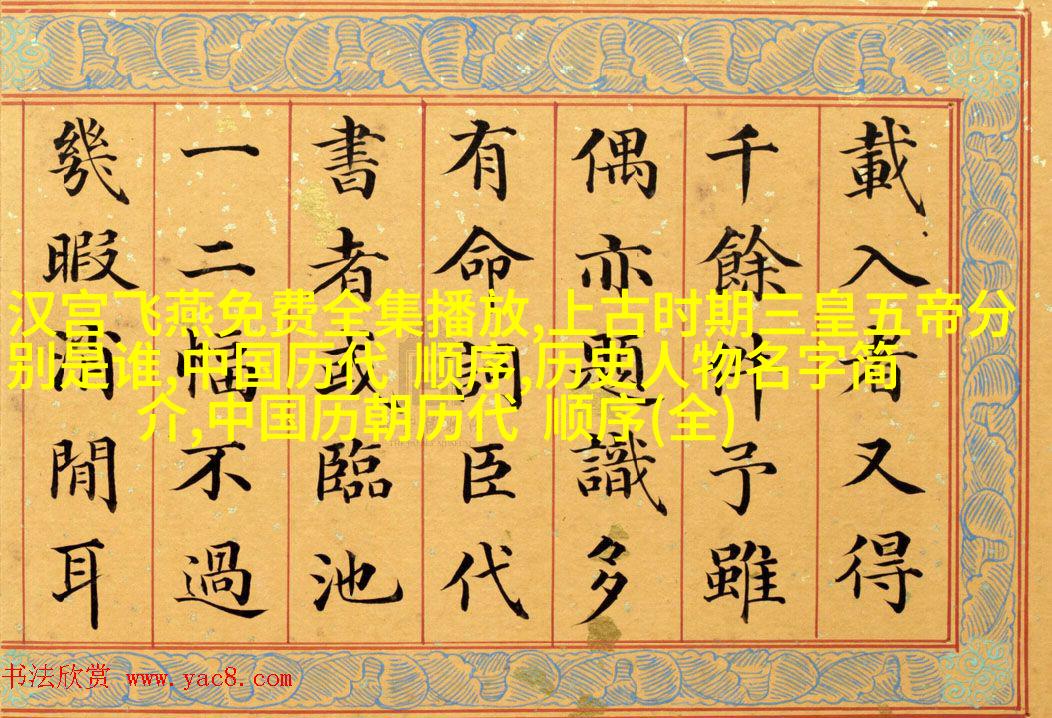 載入者又得
千餘件予雖
偶亦題識多
有命詞臣代
書者或臨池
一二幅不過
幾暇消閒耳
汉宫飞燕免费全集播放,上古时期三皇五帝分
别是谁,中国历代 顺序,历史人物名字简
介,中国历朝历代 顺序(全)
书法欣赏 www.yac8.com